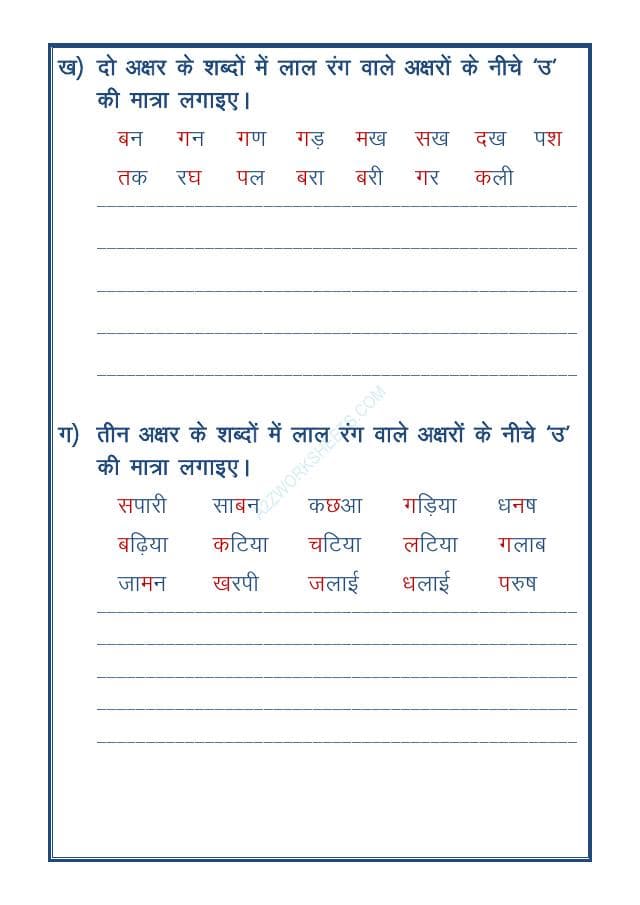 ख) दो अक्षर के शब्दों में लाल रंग वाले अक्षरों के नीचे ‘उ’
की मात्रा लगाइए।
बन गन गण गड़ मख सख दख पश
तक रघ पल बरा बरी गर कली
ग) तीन अक्षर के शब्दों में लाल रंग वाले अक्षरों के नीचे ‘उ’
की मात्रा लगाइए।
सपारी साबन कछआ गड़िया धनष
बढ़िया कटिया चटिया लटिया गलाब
जामन खरपी जलाई धलाई परुष
A2ZWORKSHEETS.COM